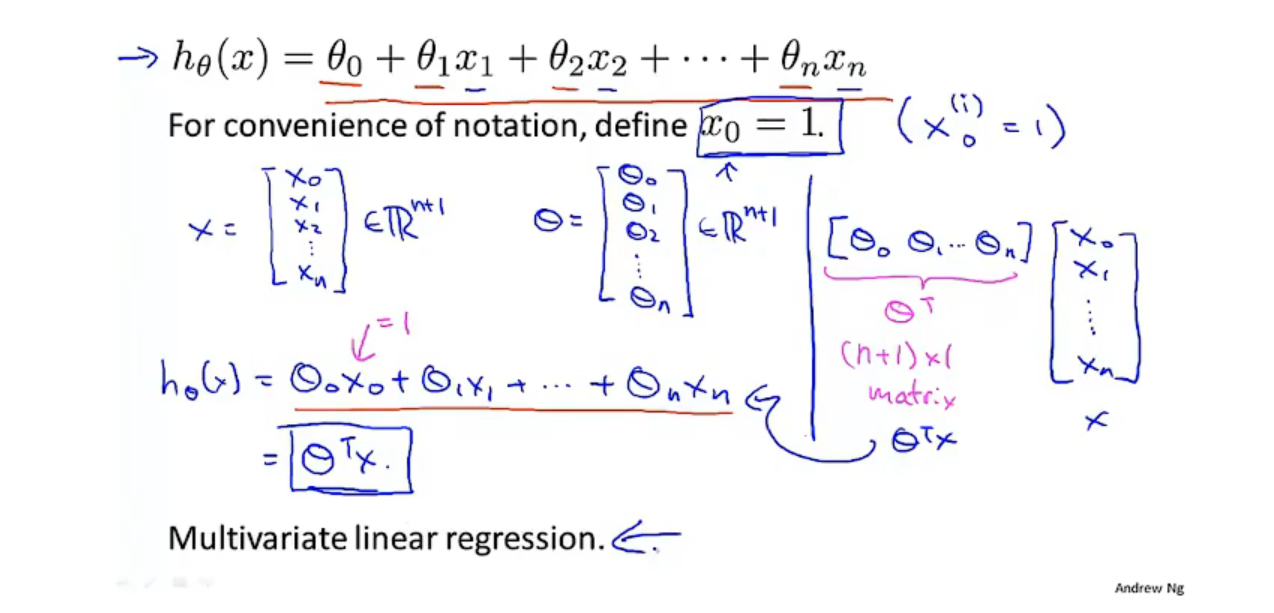 → hθ(x) = θ0 + θ1x1 + θ2x2 + ··· + θnxn
For convenience of notation, define x0 = 1. (x0^(i) = 1)
x = [x0 x1 x2 ⋮ xn] ∈ ℝ^(n+1) θ = [θ0 θ1 θ2 ⋮ θn] ∈ ℝ^(n+1)
[θ0 θ1 ··· θn] [x0 x1 ⋮ xn]
θ^T
(n+1)×1
matrix
x
θ^T x
= 1
hθ(x) = θ0x0 + θ1x1 + ··· + θnxn
= θ^T x.
Multivariate linear regression. ←
Andrew Ng